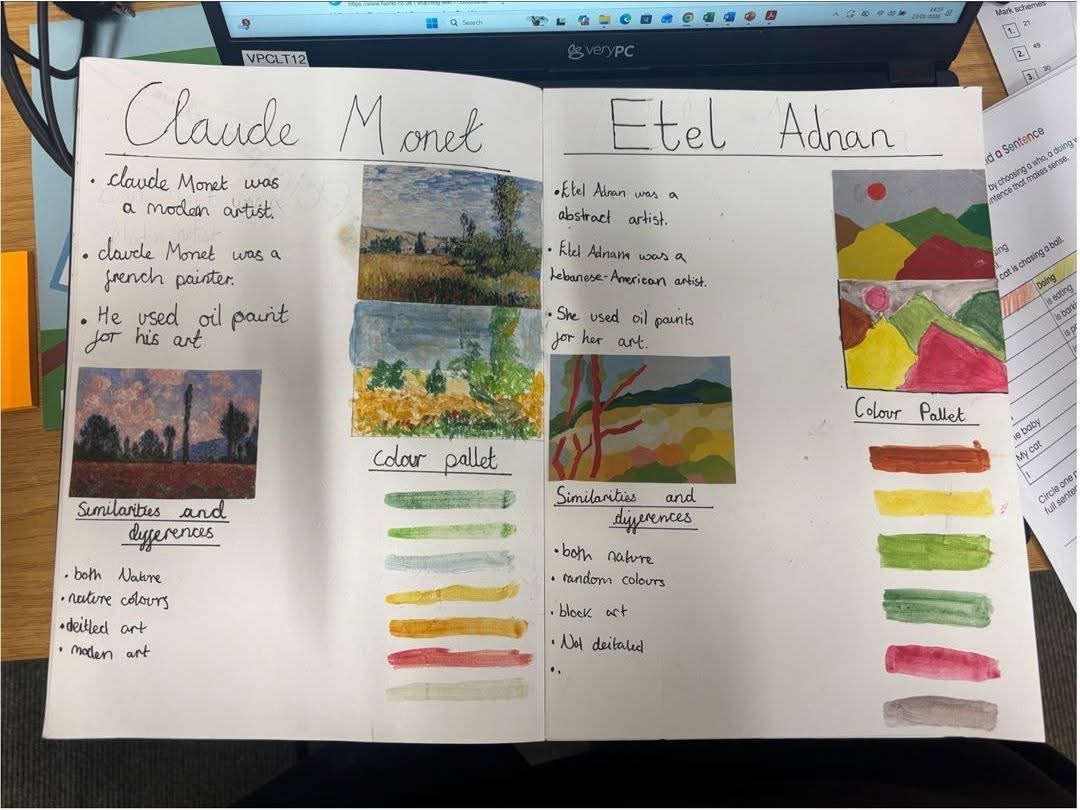 Search
14:55
23/01/2026
VPCLT12
veryPC
Mark schemes
1. 21
2. 49
3. 30
Claude Monet
• Claude Monet was
a modern artist.
• Claude Monet was a
french painter.
• He used oil paint
for his art.
Similarities and
differences
• both Nature
• nature colours
• deitled art
• moden art
Colour pallet
Etel Adnan
• Etel Adnan was a
abstract artist.
• Etel Adnam was a
Lebanese-American artist.
• She used oil paints
for her art.
Similarities and
differences
• both nature
• random colours
• block art
• Not deitaled
•.
Colour Pallet
d a Sentence
by choosing a who, a doing
ntence that makes sense.
cat is chasing a ball.
Doing
is eating
is barki
is p
is
e baby
My cat
I
Circle one
full senten